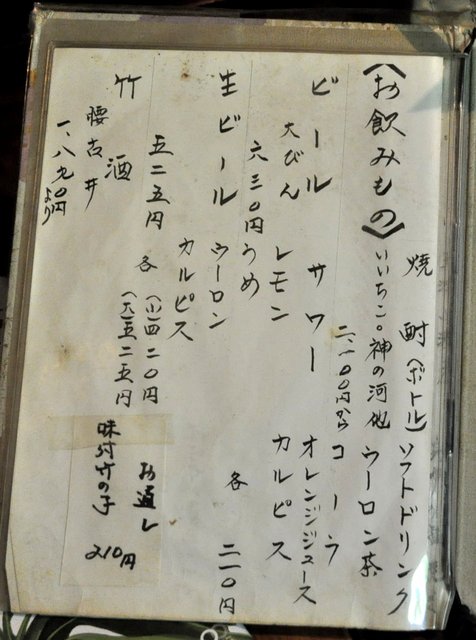 〈お飲みもの〉
ビール
大びん
六三〇円
生ビール
五二五円
竹酒
腰古井
一、八九〇円より
焼酎(ボトル)
いいちこ。神の河他
二、一〇〇円から
サワー
レモン
うめ
ウーロン
カルピス
各
(小)四二〇円
(大)五二五円
ソフトドリンク
ウーロン茶
コーラ
オレンジジュース
カルピス
各
二一〇円
お通し
味付竹の子
210円